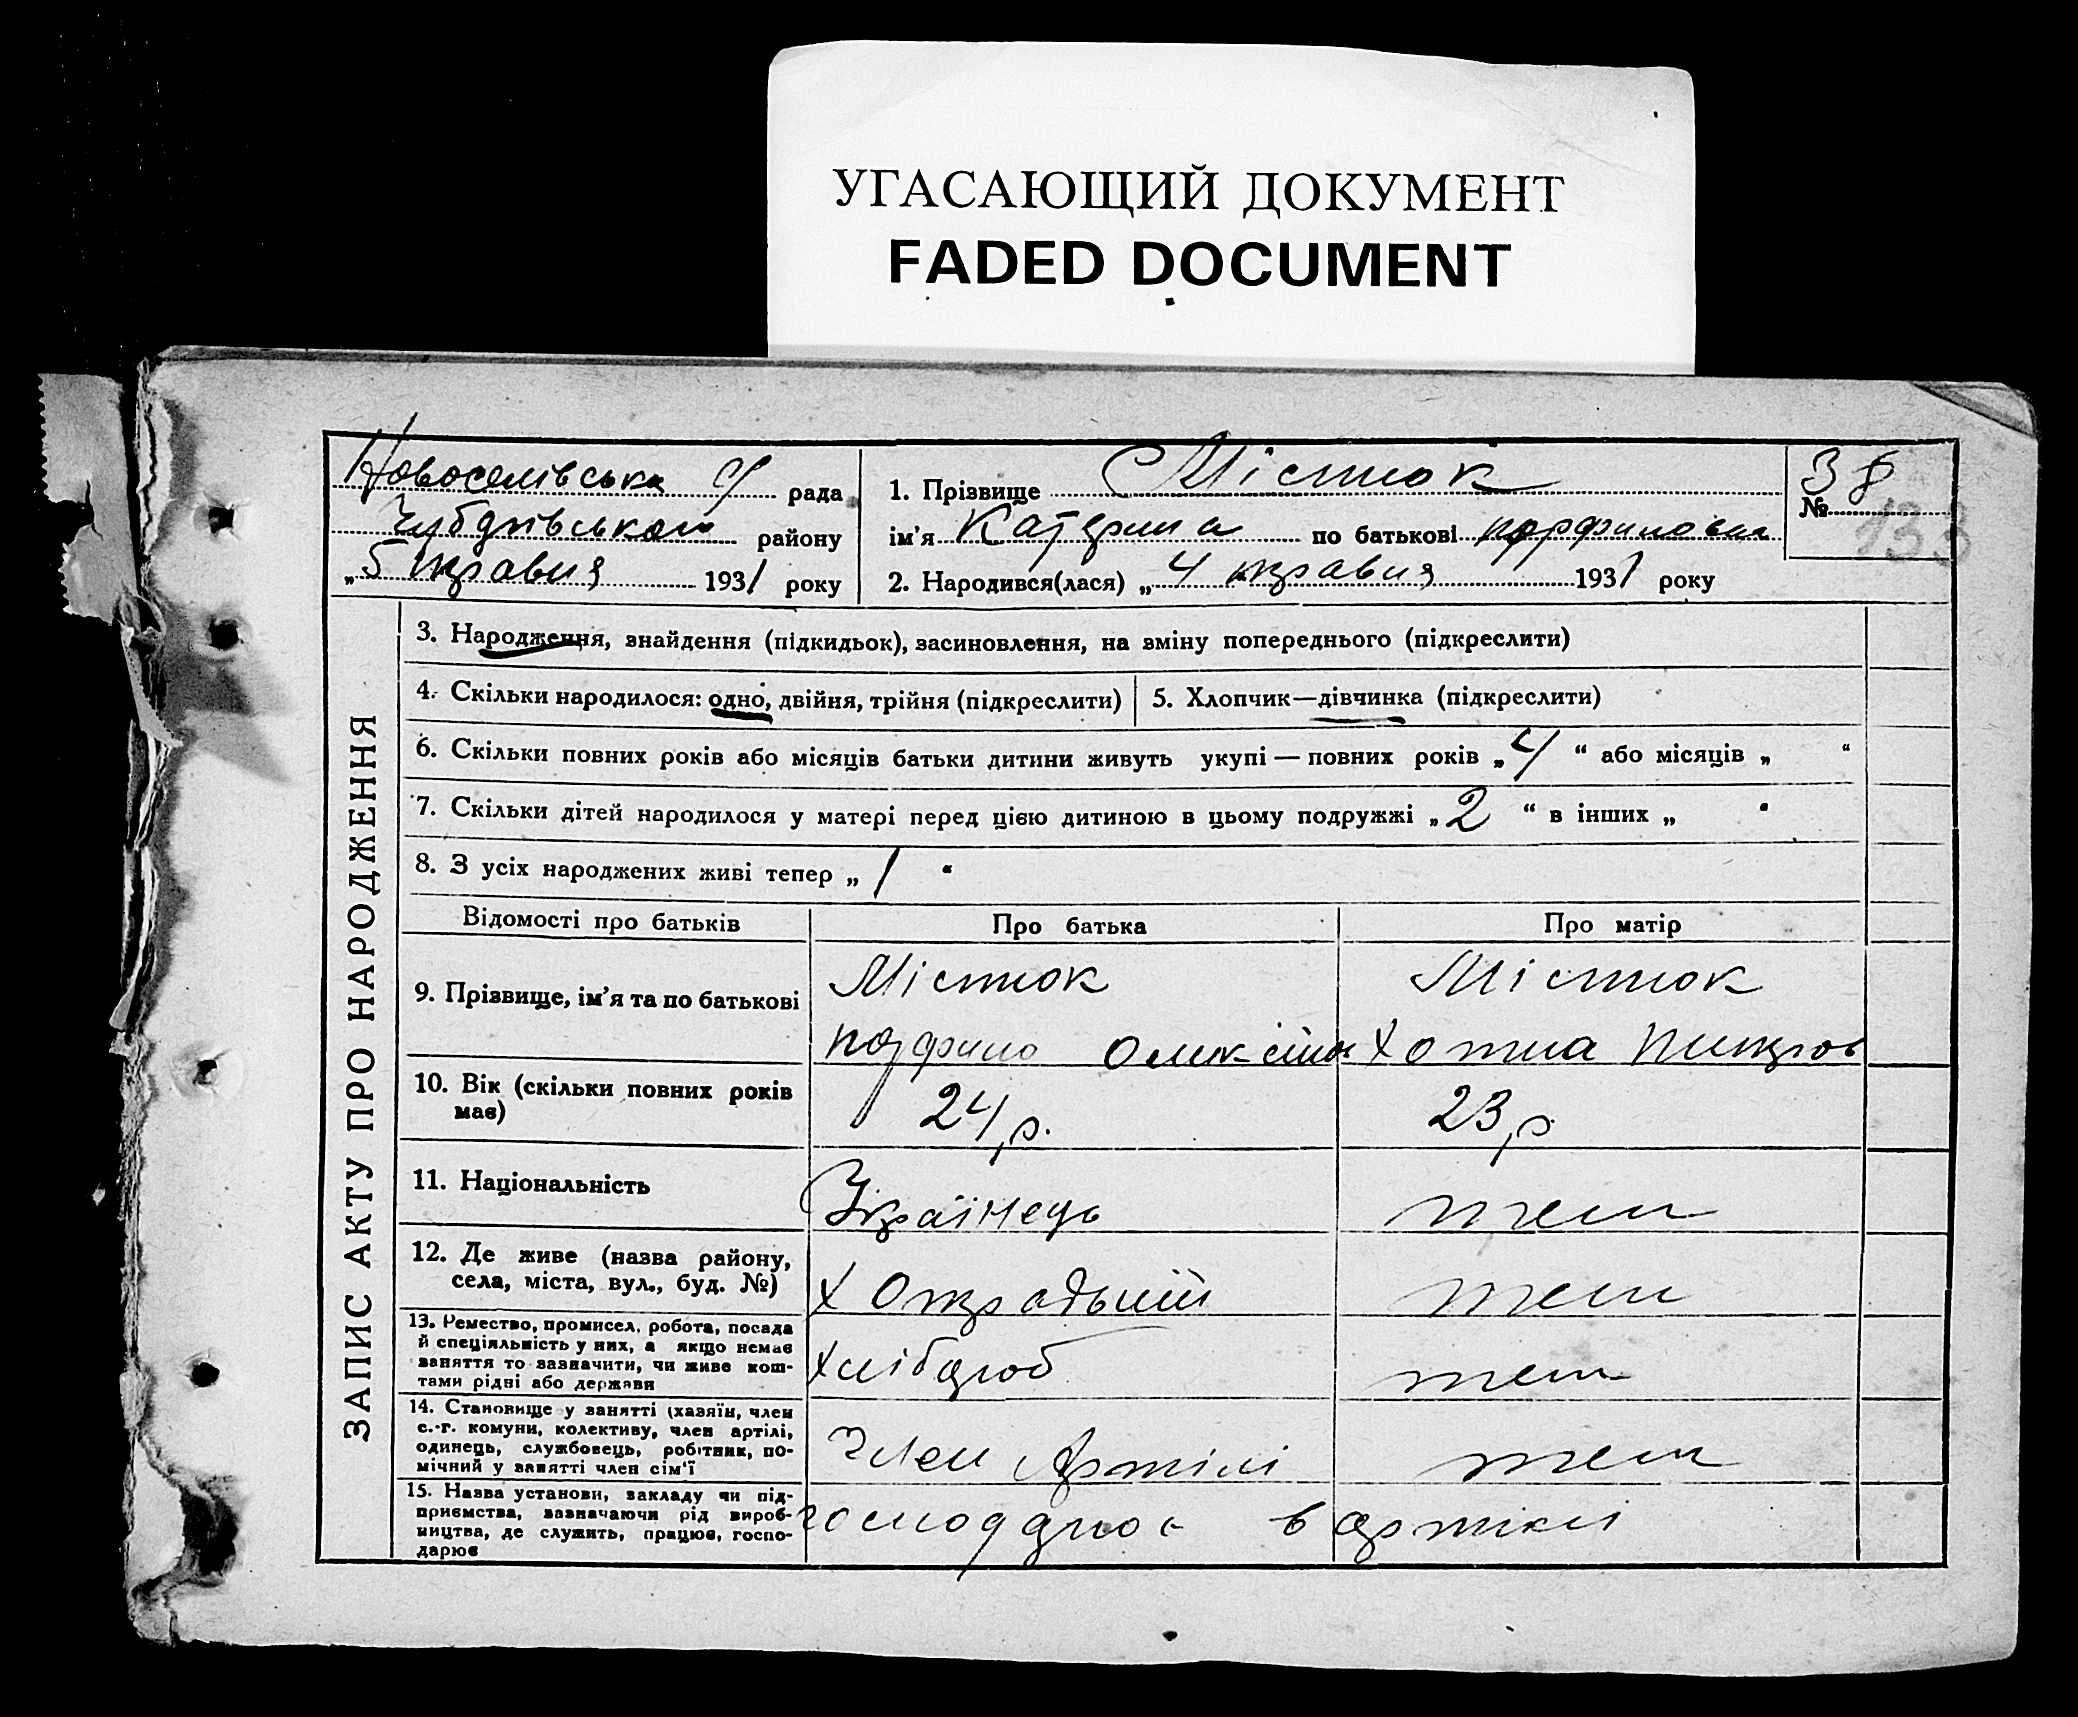 УГАСАЮЩИЙ ДОКУМЕНТ
FADED DOCUMENT
Новоселівська рада
району
„5 травня 1931 року
1. Прізвище Містюк
ім'я Катерина по батькові Порфиловна
2. Народився(лася) „4 травня 1931 року
№ 38
133
ЗАПИС АКТУ ПРО НАРОДЖЕННЯ
3. Народження, знайдення (підкидьок), засиновлення, на зміну попереднього (підкреслити)
4. Скільки народилося: одно, двійня, трійня (підкреслити)
5. Хлопчик—дівчинка (підкреслити)
6. Скільки повних років або місяців батьки дитини живуть укупі — повних років „4“ або місяців „ “
7. Скільки дітей народилося у матері перед цією дитиною в цьому подружжі „2“ в інших „ “
8. З усіх народжених живі тепер „1“
Відомості про батьків
Про батька
Про матір
9. Прізвище, ім'я та по батькові
Містюк
Містюк
10. Вік (скільки повних років
має)
24 р.
23 р.
11. Національність
Українець
теж
12. Де живе (назва району,
села, міста, вул., буд. №)
х Отрадьний
теж
13. Ремество, промисел, робота, посада
й спеціяльність у них, а якщо немає
заняття то зазначити, чи живе кош-
тами рідні або держави
Хлібороб
теж
14. Становище у занятті (хазяїн, член
с.-г. комуни, колективу, член артілі,
одинець, службовець, робітник, по-
мічний у занятті член сім'ї
Член Артілі
теж
15. Назва установи, закладу чи під-
приємства, зазначаючи рід вироб-
ництва, де служить, працює, госпо-
дарює
в артілі